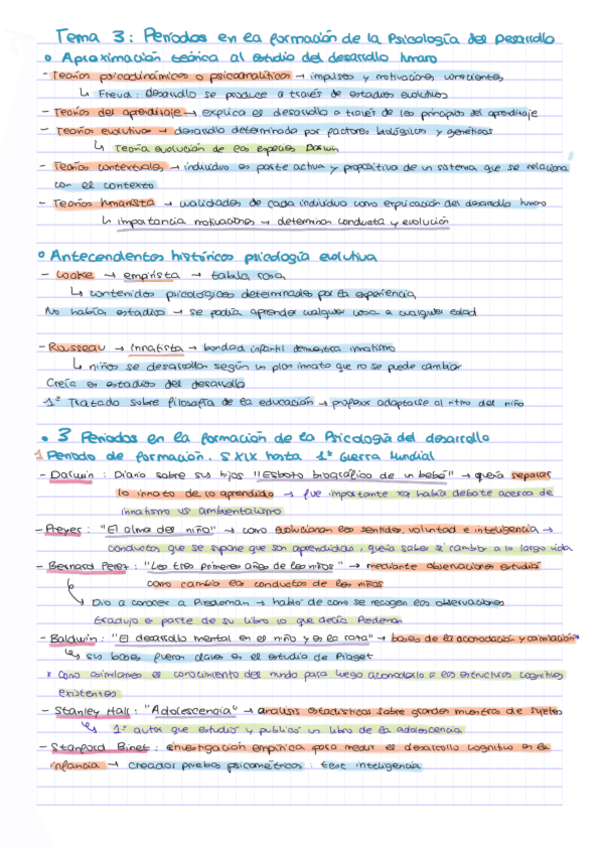 Tema 3: Períodos en la formación de la Psicología del Desarrollo
• Aproximación teórica al estudio del desarrollo humano
- Teorías psicodinámicas o psicoanalíticas → impulsos y motivaciones conscientes
↳ Freud: desarrollo se produce a través de estadios evolutivos
- Teorías del aprendizaje → explica el desarrollo a través de los principios del aprendizaje
- Teorías evolutivas → desarrollo determinado por factores biológicos y genéticos
↳ Teoría evolución de las especies Darwin
- Teorías contextuales → individuo es parte activa y propositiva de un sistema que se relaciona
con el contexto
- Teorías humanista → cualidades de cada individuo como explicación del desarrollo humano
↳ importancia motivaciones → determinan conducta y evolución
• Antecendentes históricos psicología evolutiva
- Locke → empirista → tabula rasa
↳ contenidos psicológicos determinados por la experiencia
No había estadios → se podía aprender cualquier cosa a cualquier edad
- Rousseau → Innatista → bondad infantil demuestra innatismo
↳ niños se desarrollan según un plan innato que no se puede cambiar
Creía en estadios del desarrollo
1º Tratado sobre filosofía de la educación → profesor adaptarse al ritmo del niño
• 3 Periodos en la formación de la Psicología del desarrollo
1 Periodo de formación. S XIX hasta 1º Guerra Mundial
- Darwin: Diario sobre sus hijos "Esbozo biográfico de un bebé" → quería separar
lo innato de lo aprendido → fue importante xq había debate acerca de
innatismo vs ambientalismo
- Preyer: "El alma del niño" → como evolucionan los sentidos, voluntad e inteligencia →
conductas que se supone que son aprendidas, quería saber si cambian a lo largo vida
- Bernard Perez: "Los tres primeros años de los niños" → mediante observaciones estudió
como cambia las conductas de los niños
↳ Dio a conocer a Tiedeman → habló de como se recogen las observaciones
tradujo el parte de su libro lo que decía Tiedeman
- Baldwin: "El desarrollo mental en el niño y en la rata" → bases de la acomodación y asimilación*
↳ sus bases fueron claves en el estudio de Piaget
* Como asimilamos el conocimiento del mundo para luego acomodarlo a las estructuras cognitivas
existentes
- Stanley Hall: "Adolescencia" → análisis estadísticos sobre grandes muestras de sujetos
↳ 1º autor que estudió y publicó un libro de la adolescencia
- Stanford Binet: investigación empírica para medir el desarrollo cognitivo en la
infancia → creador pruebas psicométricas: test inteligencia